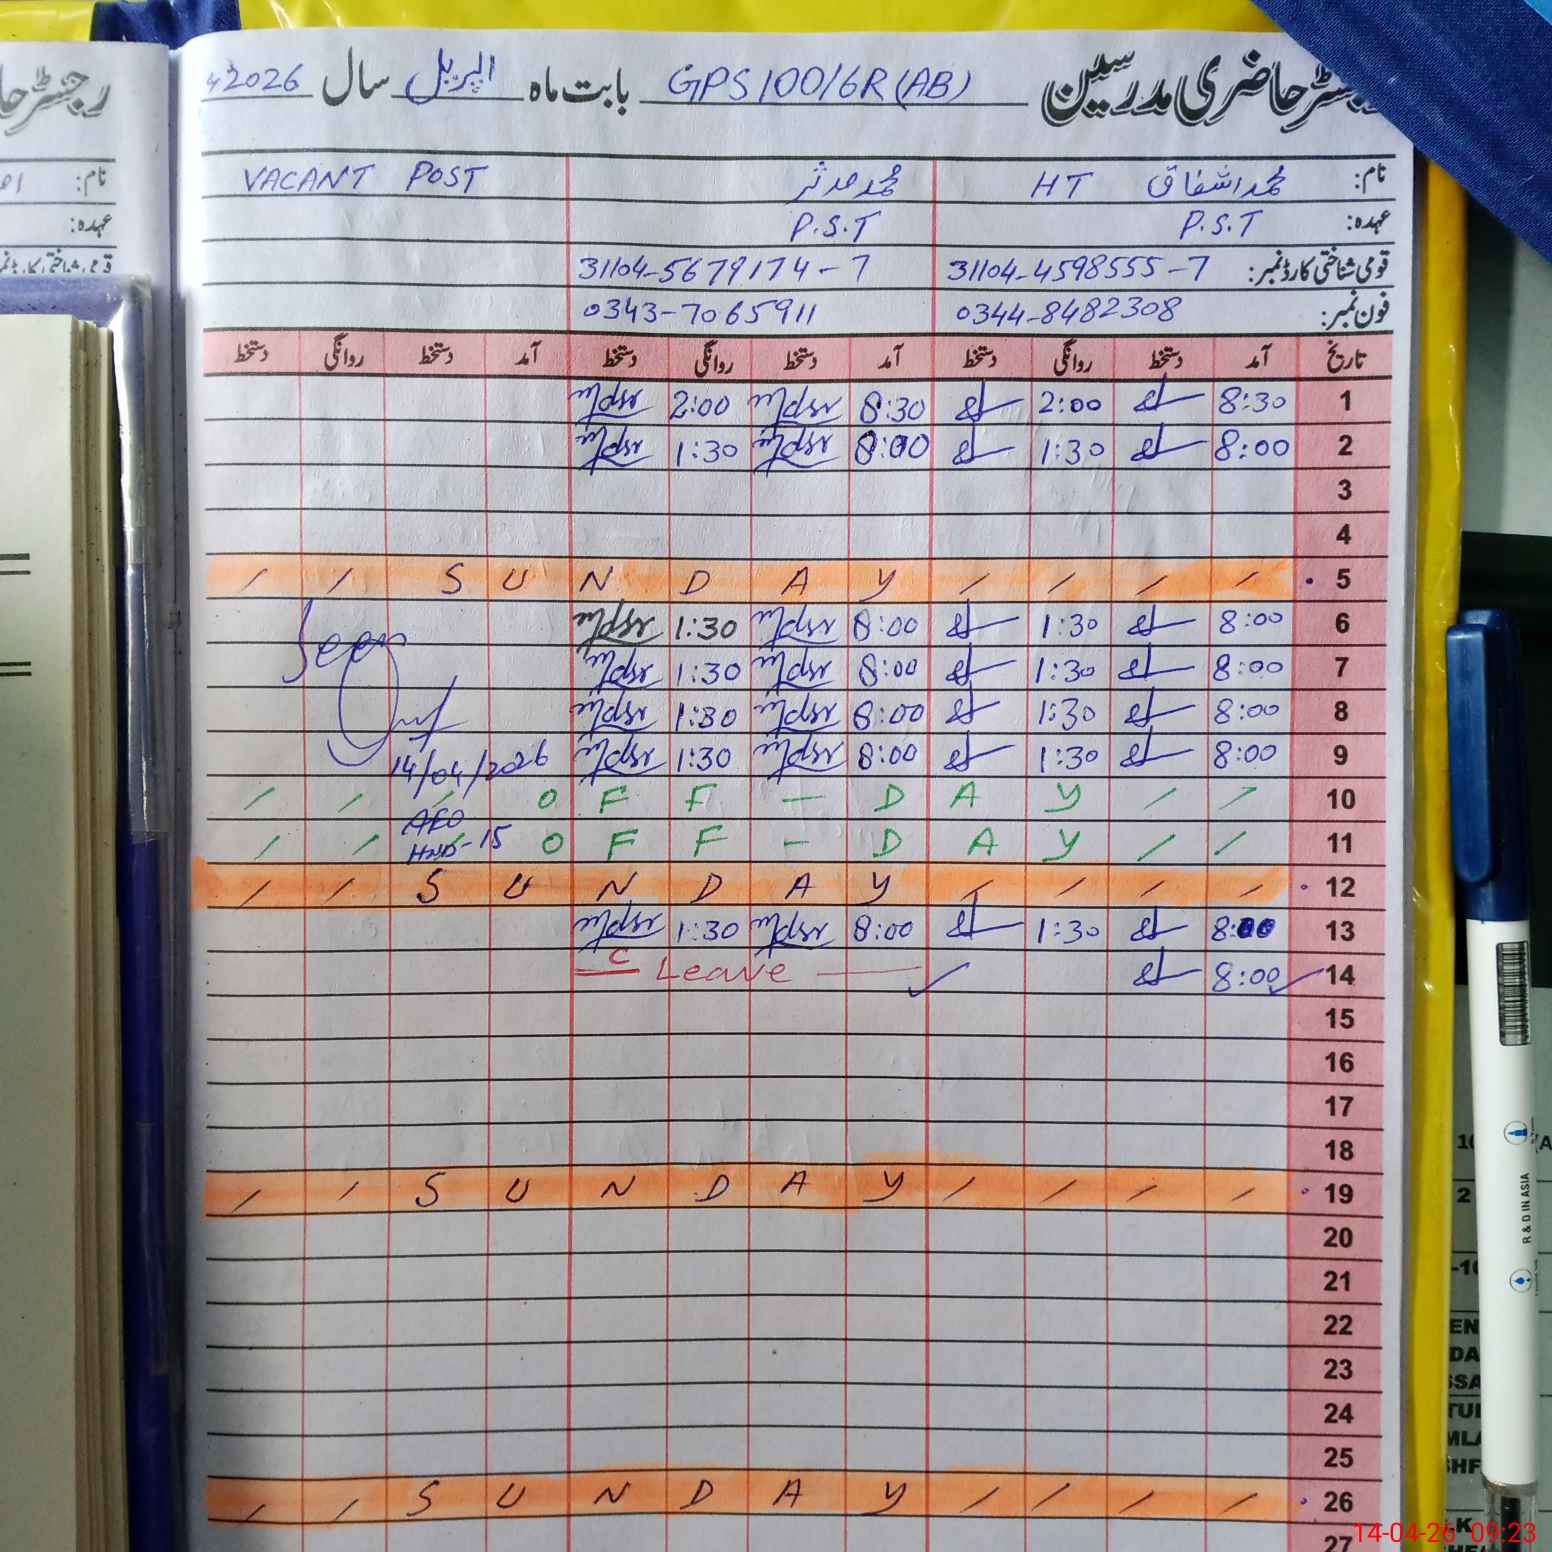 رجسٹر حاضری مدرسین GPS 100/6R (AB) بابت ماہ اپریل سال 2026
نام: محمد اشفاق HT محمد مدثر VACANT POST
عہدہ: P.S.T P.S.T
قومی شناختی کارڈ نمبر: 31104-4598555-7 31104-5679174-7
فون نمبر: 0344-8482308 0343-7065911
تاریخ آمد دستخط روانگی دستخط آمد دستخط روانگی دستخط آمد دستخط روانگی دستخط
1 8:30 2:00 8:30 Mdsr 2:00 Mdsr
2 8:00 1:30 8:00 Mdsr 1:30 Mdsr
3
4
5 / / / / SUNDAY / /
6 8:00 1:30 8:00 Mdsr 1:30 Mdsr
Seen
7 8:00 1:30 8:00 Mdsr 1:30 Mdsr
8 8:00 1:30 8:00 Mdsr 1:30 Mdsr
9 8:00 1:30 8:00 Mdsr 1:30 Mdsr
14/04/2026
10 / / OFF - DAY / / /
AEO
11 / / OFF - DAY / /
HND-15
12 / / / / SUNDAY / /
13 8:00 1:30 8:00 Mdsr 1:30 Mdsr
14 8:00 C Leave
15
16
17
18
19 / / / / SUNDAY / /
20
21
22
23
24
25
26 / / / / SUNDAY / /
27
رجسٹر حا
نام:
عہدہ:
قومی شناختی کارڈ نمبر
R & D IN ASIA
14-04-26 09:23